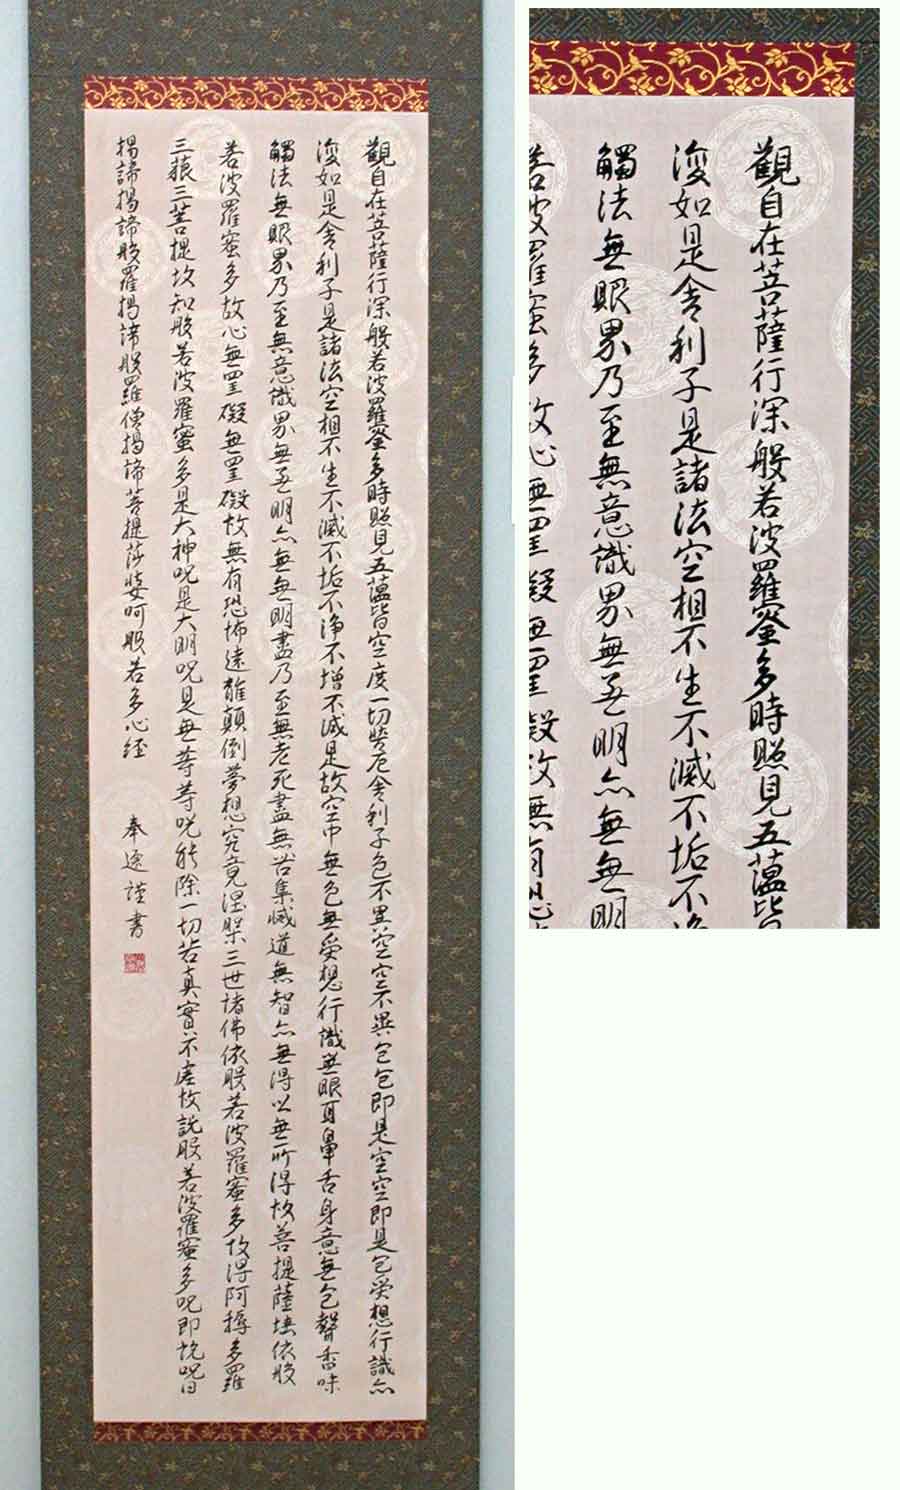 觀自在菩薩行深般若波羅蜜多時照見五蘊皆空度一切苦厄舍利子色不異空空不異色色即是空空即是色受想行識亦
復如是舍利子是諸法空相不生不滅不垢不淨不增不減是故空中無色無受想行識無眼耳鼻舌身意無色聲香味
觸法無眼界乃至無意識界無無明亦無無明盡乃至無老死盡無苦集滅道無智亦無得以無所得故菩提薩埵依般
若波羅蜜多故心無罣礙無罣礙故無有恐怖遠離顛倒夢想究竟涅槃三世諸佛依般若波羅蜜多故得阿耨多羅
三藐三菩提故知般若波羅蜜多是大神呪是大明呪是無等等呪能除一切苦真實不虛故說般若波羅蜜多呪即說呪曰
揭諦揭諦般羅揭諦般羅僧揭諦菩提莎婆呵般若多心経
謹書
觀自在菩薩行深般若波羅蜜多時照見五蘊皆
復如是舍利子是諸法空相不生不滅不垢不淨
觸法無眼界乃至無意識界無無明亦無無明
若波羅蜜多故心無罣礙無罣礙故無有恐